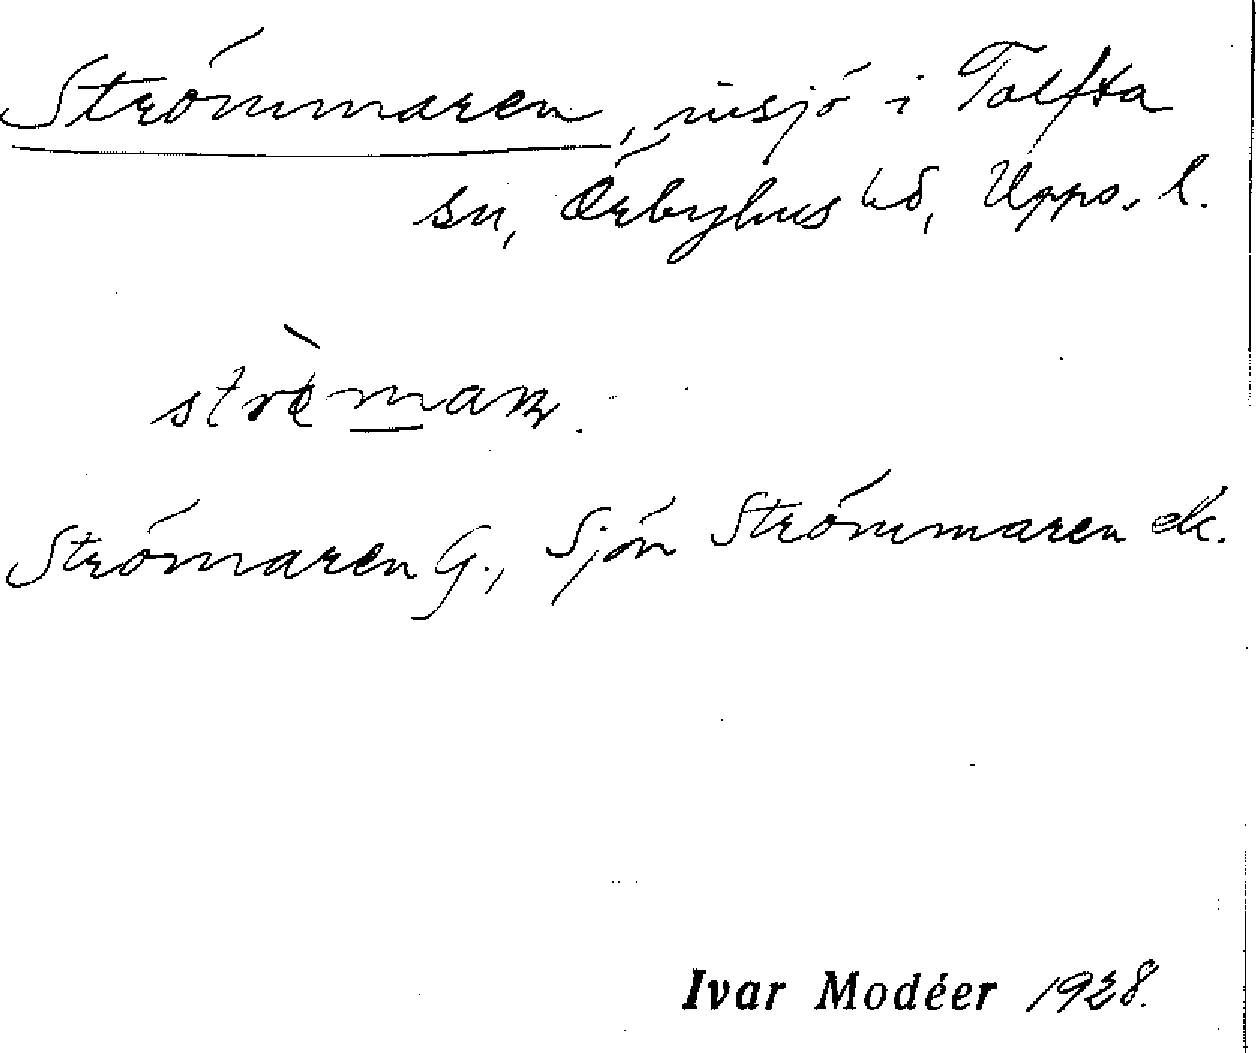 Strömmaren, insjö i Tolfta
sn, Örbyhus hd, Upps. l.
Strömaren G., Sjön Strömmaren ek.
Ivar Modéer 1928.